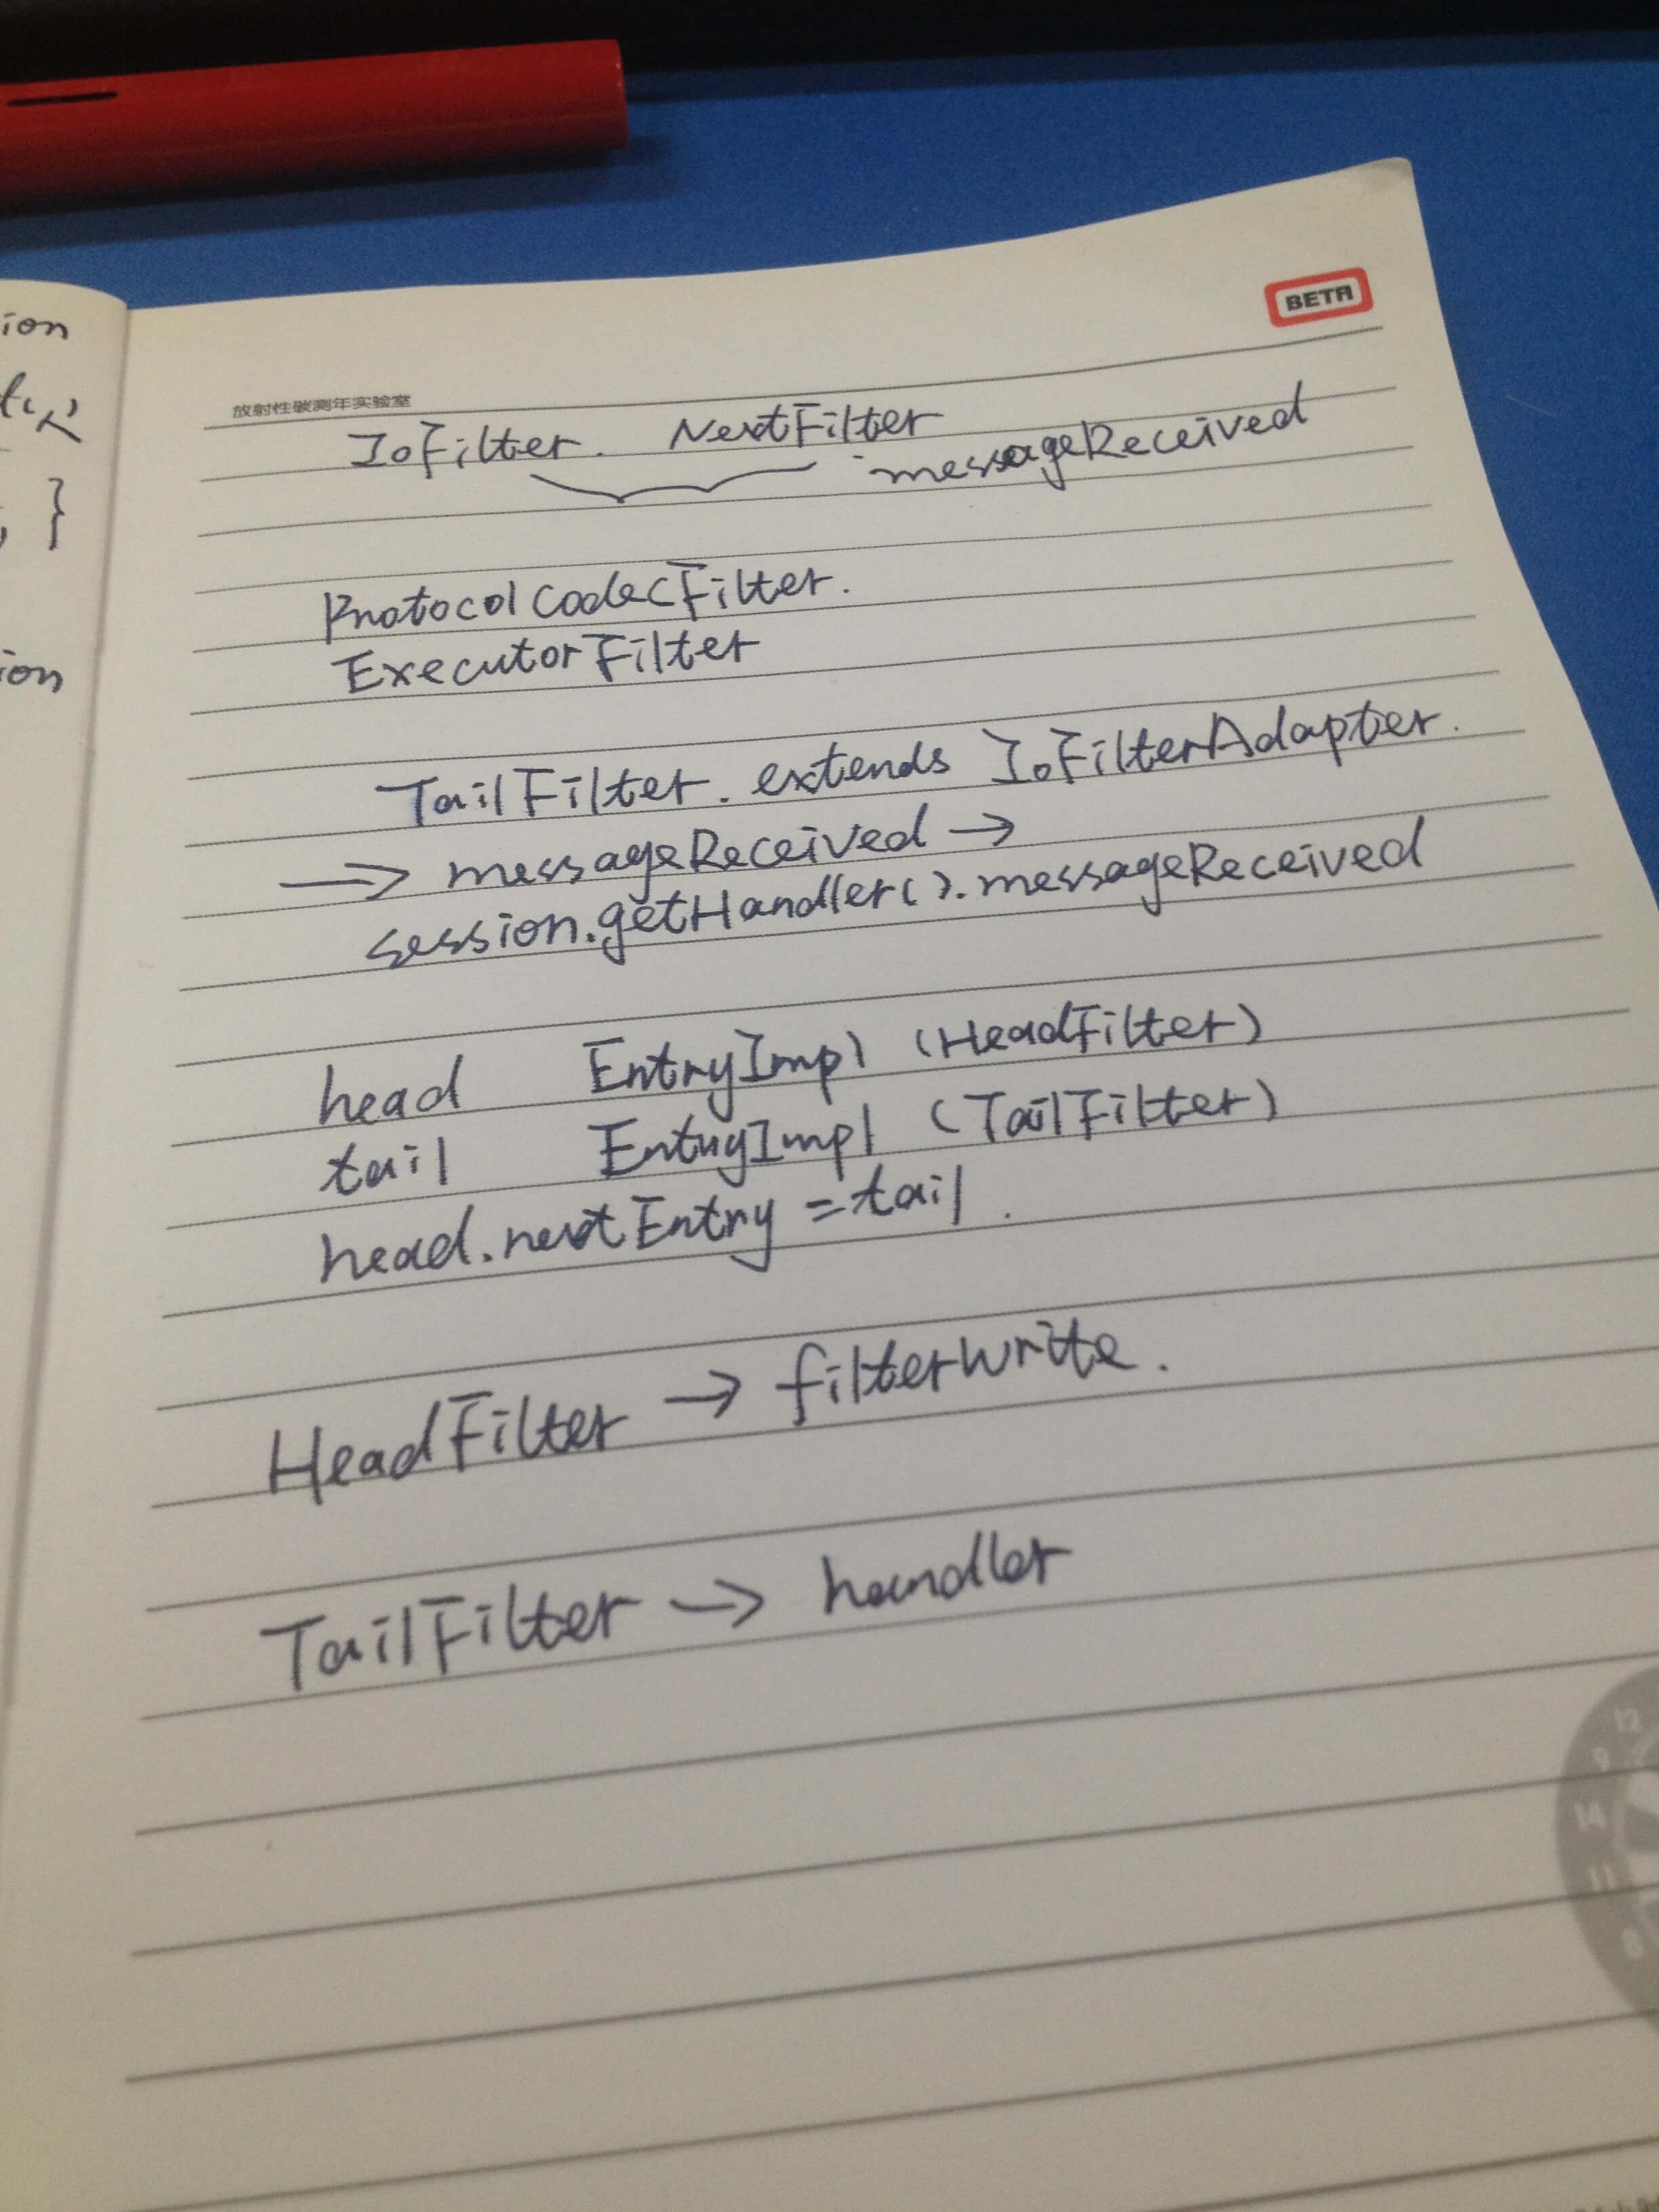 BETA
放射性碳测年实验室
IoFilter. NextFilter
messageReceived
ProtocolCodecFilter.
ExecutorFilter
TailFilter. extends IoFilterAdapter.
→ messageReceived →
session.getHandler().messageReceived
head EntryImpl (HeadFilter)
tail EntryImpl (TailFilter)
head.nextEntry = tail.
HeadFilter → filterWrite.
TailFilter → handler
ion
}
ion
12
9
14
11
8